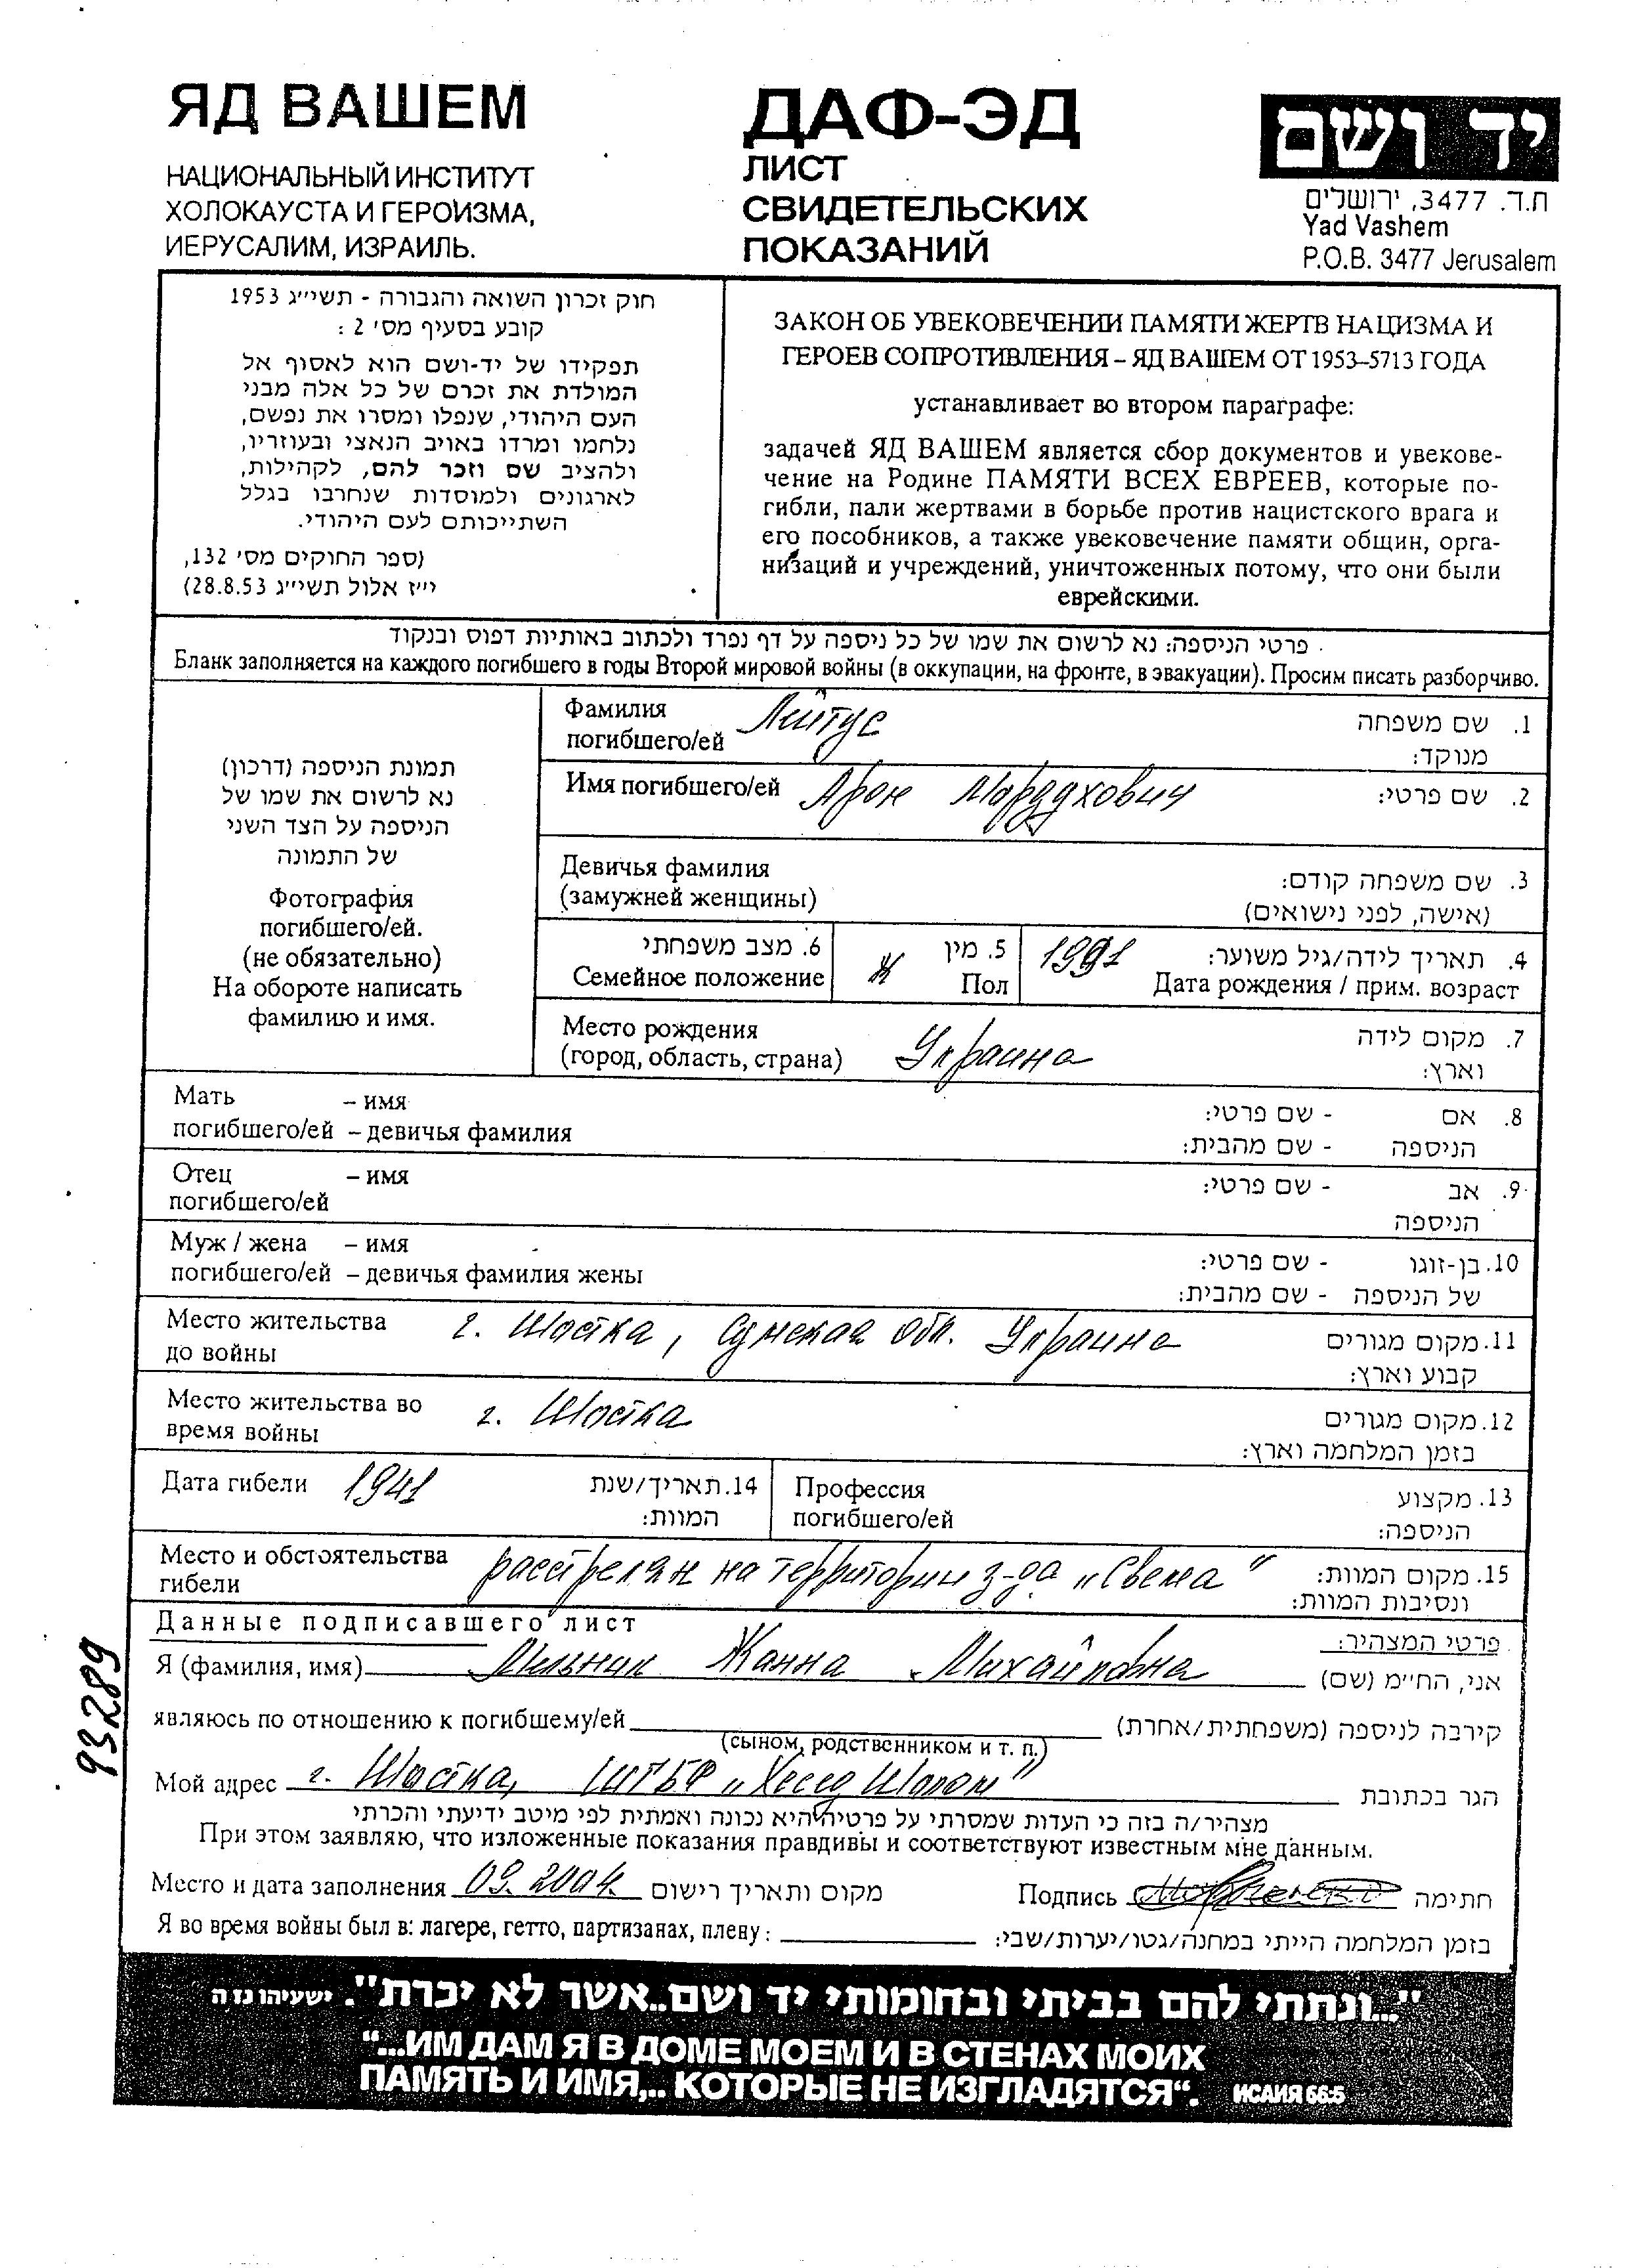 ЯД ВАШЕМ
НАЦИОНАЛЬНЫЙ ИНСТИТУТ
ХОЛОКАУСТА И ГЕРОИЗМА,
ИЕРУСАЛИМ, ИЗРАИЛЬ.
ДАФ-ЭД
ЛИСТ
СВИДЕТЕЛЬСКИХ
ПОКАЗАНИЙ
יד ושם
ת.ד. 3477, ירושלים
Yad Vashem
P.O.B. 3477 Jerusalem
חוק זכרון השואה והגבורה - תשי״ג 1953
קובע בסעיף מס׳ 2 :
תפקידו של יד-ושם הוא לאסוף אל
המולדת את זכרם של כל אלה מבני
העם היהודי, שנפלו ומסרו את נפשם,
נלחמו ומרדו באויב הנאצי ובעוזריו,
ולהציב שם וזכר להם, לקהילות,
לארגונים ולמוסדות שנחרבו בגלל
השתייכותם לעם היהודי.
(ספר החוקים מס׳ 132,
י״ז אלול תשי״ג 28.8.53)
ЗАКОН ОБ УВЕКОВЕЧЕНИИ ПАМЯТИ ЖЕРТВ НАЦИЗМА И
ГЕРОЕВ СОПРОТИВЛЕНИЯ – ЯД ВАШЕМ ОТ 1953–5713 ГОДА
устанавливает во втором параграфе:
задачей ЯД ВАШЕМ является сбор документов и увекове-
чение на Родине ПАМЯТИ ВСЕХ ЕВРЕЕВ, которые по-
гибли, пали жертвами в борьбе против нацистского врага и
его пособников, а также увековечение памяти общин, орга-
низаций и учреждений, уничтоженных потому, что они были
еврейскими.
פרטי הניספה: נא לרשום את שמו של כל ניספה על דף נפרד ולכתוב באותיות דפוס ובנקוד
Бланк заполняется на каждого погибшего в годы Второй мировой войны (в оккупации, на фронте, в эвакуации). Просим писать разборчиво.
תמונת הניספה (דרכון)
נא לרשום את שמו של
הניספה על הצד השני
של התמונה
Фотография
погибшего/ей.
(не обязательно)
На обороте написать
фамилию и имя.
Фамилия Лейтус 1. שם משפחה
погибшего/ей מנוקד:
Имя погибшего/ей Арон Мордухович 2. שם פרטי:
Девичья фамилия 3. שם משפחה קודם:
(замужней женщины) (אישה, לפני נישואים)
6. מצב משפחתי 5. מין 1991 4. תאריך לידה/גיל משוער:
Семейное положение ж Пол Дата рождения / прим. возраст
Место рождения 7. מקום לידה
(город, область, страна) Украина וארץ:
Мать – имя 8. אם - שם פרטי:
погибшего/ей – девичья фамилия הניספה - שם מהבית:
Отец – имя 9. אב - שם פרטי:
погибшего/ей הניספה
Муж / жена – имя 10. בן-זוגו - שם פרטי:
погибшего/ей – девичья фамилия жены של הניספה - שם מהבית:
Место жительства г. Шостка, Сумская обл. Украина 11. מקום מגורים
до войны קבוע וארץ:
Место жительства во г. Шостка 12. מקום מגורים
время войны בזמן המלחמה וארץ:
Дата гибели 1941 14. תאריך/שנת Профессия 13. מקצוע
המוות: погибшего/ей הניספה:
Место и обстоятельства расстрелян на территории з-да „Свема" 15. מקום המוות:
гибели ונסיבות המוות:
Данные подписавшего лист פרטי המצהיר:
Я (фамилия, имя) Мельник Жанна Михайловна אני, הח״מ (שם)
являюсь по отношению к погибшему/ей קירבה לניספה (משפחתית/אחרת)
(сыном, родственником и т. п.)
Мой адрес г. Шостка, ШГБФ „Хесед Шолом" הגר בכתובת
מצהיר/ה בזה כי העדות שמסרתי על פרטיה היא נכונה ואמתית לפי מיטב ידיעתי והכרתי
При этом заявляю, что изложенные показания правдивы и соответствуют известным мне данным.
Место и дата заполнения 09. 2004. מקום ותאריך רישום Подпись חתימה
Я во время войны был в: лагере, гетто, партизанах, плену : בזמן המלחמה הייתי במחנה/גטו/יערות/שבי:
93289
"...ונתתי להם בביתי ובחומותי יד ושם..אשר לא יכרת". ישעיהו נז ה
“...ИМ ДАМ Я В ДОМЕ МОЕМ И В СТЕНАХ МОИХ
ПАМЯТЬ И ИМЯ,.. КОТОРЫЕ НЕ ИЗГЛАДЯТСЯ“. ИСАИЯ 66:5